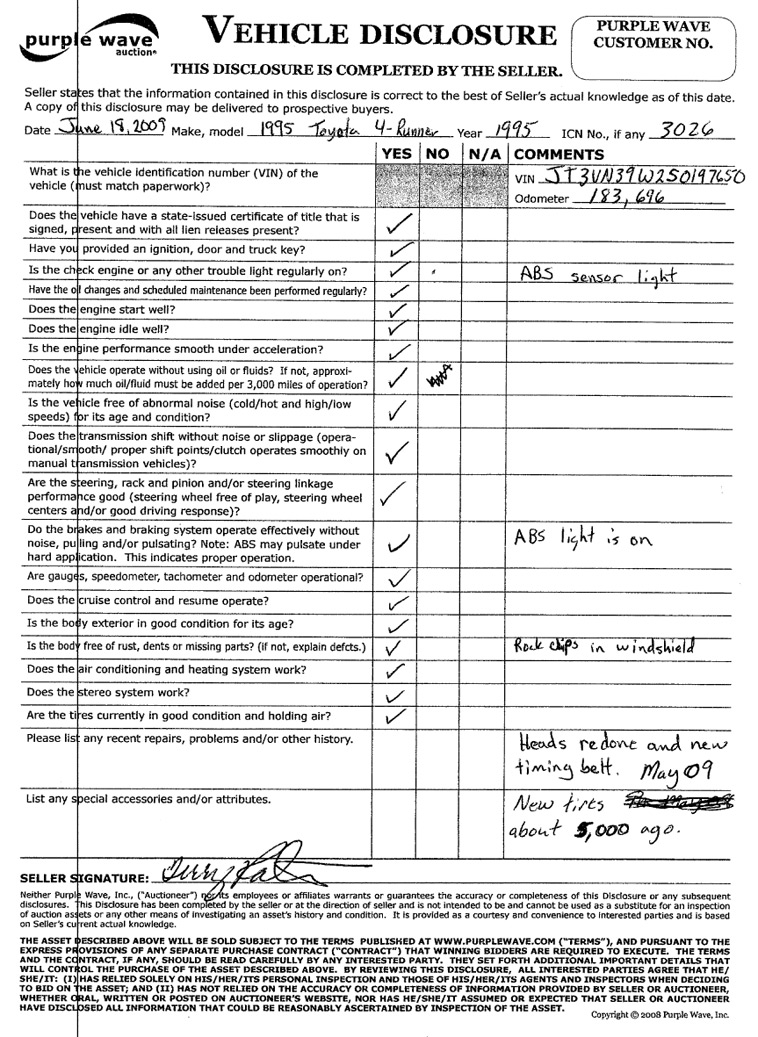 purple wave
auction®
VEHICLE DISCLOSURE
PURPLE WAVE
CUSTOMER NO.
THIS DISCLOSURE IS COMPLETED BY THE SELLER.
Seller states that the information contained in this disclosure is correct to the best of Seller's actual knowledge as of this date.
A copy of this disclosure may be delivered to prospective buyers.
Date June 18, 2009 Make, model 1995 Toyota 4-Runner Year 1995 ICN No., if any 3026
YES NO N/A COMMENTS
What is the vehicle identification number (VIN) of the
vehicle (must match paperwork)?
VIN JT3VN39W2S0197650
Odometer 183,696
Does the vehicle have a state-issued certificate of title that is
signed, present and with all lien releases present?
Have you provided an ignition, door and truck key?
Is the check engine or any other trouble light regularly on? ABS sensor light
Have the oil changes and scheduled maintenance been performed regularly?
Does the engine start well?
Does the engine idle well?
Is the engine performance smooth under acceleration?
Does the vehicle operate without using oil or fluids? If not, approxi-
mately how much oil/fluid must be added per 3,000 miles of operation?
Is the vehicle free of abnormal noise (cold/hot and high/low
speeds) for its age and condition?
Does the transmission shift without noise or slippage (opera-
tional/smooth/ proper shift points/clutch operates smoothly on
manual transmission vehicles)?
Are the steering, rack and pinion and/or steering linkage
performance good (steering wheel free of play, steering wheel
centers and/or good driving response)?
Do the brakes and braking system operate effectively without
noise, pulling and/or pulsating? Note: ABS may pulsate under
hard application. This indicates proper operation.
ABS light is on
Are gauges, speedometer, tachometer and odometer operational?
Does the cruise control and resume operate?
Is the body exterior in good condition for its age?
Is the body free of rust, dents or missing parts? (if not, explain defcts.) Rock chips in windshield
Does the air conditioning and heating system work?
Does the stereo system work?
Are the tires currently in good condition and holding air?
Please list any recent repairs, problems and/or other history.
Heads redone and new
timing belt. May 09
List any special accessories and/or attributes.
New tires
about 5,000 ago.
SELLER SIGNATURE:
Neither Purple Wave, Inc., ("Auctioneer") nor its employees or affiliates warrants or guarantees the accuracy or completeness of this Disclosure or any subsequent
disclosures. This Disclosure has been completed by the seller or at the direction of seller and is not intended to be and cannot be used as a substitute for an inspection
of auction assets or any other means of investigating an asset's history and condition. It is provided as a courtesy and convenience to interested parties and is based
on Seller's current actual knowledge.
THE ASSET DESCRIBED ABOVE WILL BE SOLD SUBJECT TO THE TERMS PUBLISHED AT WWW.PURPLEWAVE.COM ("TERMS"), AND PURSUANT TO THE
EXPRESS PROVISIONS OF ANY SEPARATE PURCHASE CONTRACT ("CONTRACT") THAT WINNING BIDDERS ARE REQUIRED TO EXECUTE. THE TERMS
AND THE CONTRACT, IF ANY, SHOULD BE READ CAREFULLY BY ANY INTERESTED PARTY. THEY SET FORTH ADDITIONAL IMPORTANT DETAILS THAT
WILL CONTROL THE PURCHASE OF THE ASSET DESCRIBED ABOVE. BY REVIEWING THIS DISCLOSURE, ALL INTERESTED PARTIES AGREE THAT HE/
SHE/IT: (I) HAS RELIED SOLELY ON HIS/HER/ITS PERSONAL INSPECTION AND THOSE OF HIS/HER/ITS AGENTS AND INSPECTORS WHEN DECIDING
TO BID ON THE ASSET; AND (II) HAS NOT RELIED ON THE ACCURACY OR COMPLETENESS OF INFORMATION PROVIDED BY SELLER OR AUCTIONEER,
WHETHER ORAL, WRITTEN OR POSTED ON AUCTIONEER'S WEBSITE, NOR HAS HE/SHE/IT ASSUMED OR EXPECTED THAT SELLER OR AUCTIONEER
HAVE DISCLOSED ALL INFORMATION THAT COULD BE REASONABLY ASCERTAINED BY INSPECTION OF THE ASSET.
Copyright © 2008 Purple Wave, Inc.